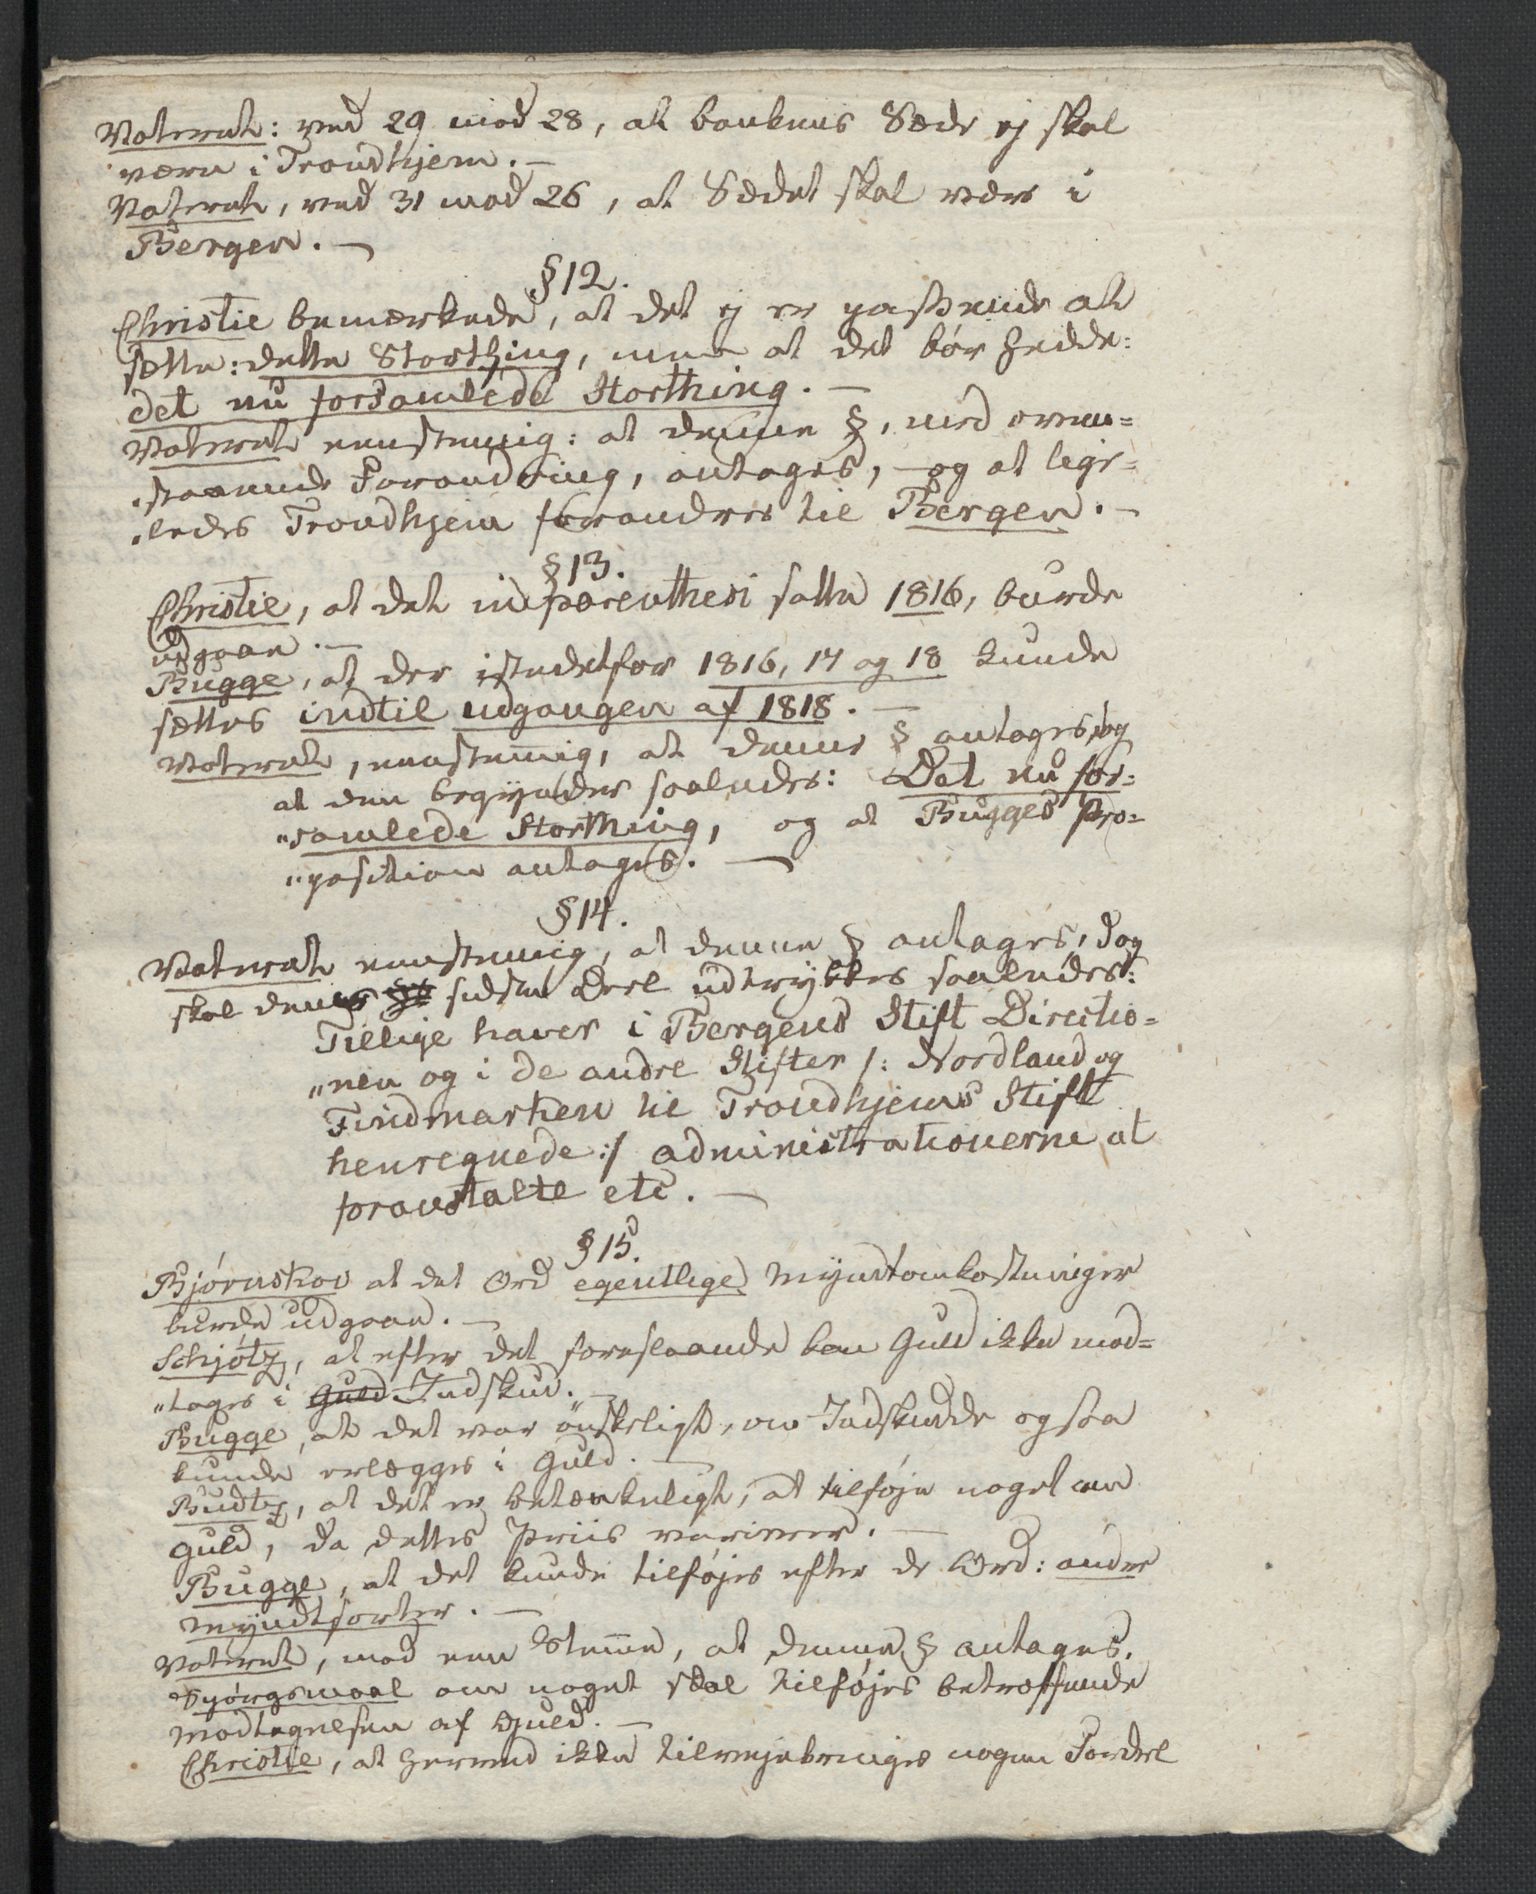 Voterat: med 29 mod 28, at bankens Sæde ej skal
være i Trondhjem. —
Voterat, med 31 mod 26, at Sædet skal være i
Bergen. —
§ 12.
Christie bemærkede, at det ej er passende at
sætte: dette Storthing, men at det bør hedde:
det nu forsamlede Storthing. —
Voterat eenstemmig: at denne §, med oven=
staaende Forandring, antages, — og at lige=
ledes Trondhjem forandres til Bergen. —
§ 13.
Christie, at det in parenthesi satte 1816, burde
udgaae. —
Bugge, at der istedetfor 1816, 17 og 18 kunde
sættes indtil udgangen af 1818. —
Voterat, eenstemmig, at denne § antages, dog
at den begynder saaledes: Det nu for=
"samlede Storthing, og at Bugges Pro=
"position antages. —
§ 14.
Voterat eenstemmig, at denne § antages, dog
skal dennes sidste Deel udtrykkes saaledes:
Tillige haver i Bergens Stift Directio=
"nen og i de andre Stifter /: Nordland og
Findmarken til Trondhjems Stift
henregnede :/ administrationerne at
foranstalte etc. —
§ 15.
Bjørnskov at det Ord egentlige Myntomkostninger
burde udgaae. —
Schjøtz, at efter det foreslaaende kan Guld ikke mod=
"tages i Guld Indskud. —
Bugge, at det var ønskeligt, om Indskudde ogsaa
kunde erlægges i Guld. —
Budtz, at det er betænkeligt, at tilføje noget om
Guld, da dettes Priis varierer. —
Bugge, at det kunde tilføjes efter de Ord: andre
Myndtsorter. —
Voterat, mod een Stemme, at denne § antages.
Spørgsmaal om noget skal tilføjes betræffende
Modtagelsen af Guld. —
Christie, at herved ikke tilvejebringes nogen Fordeel